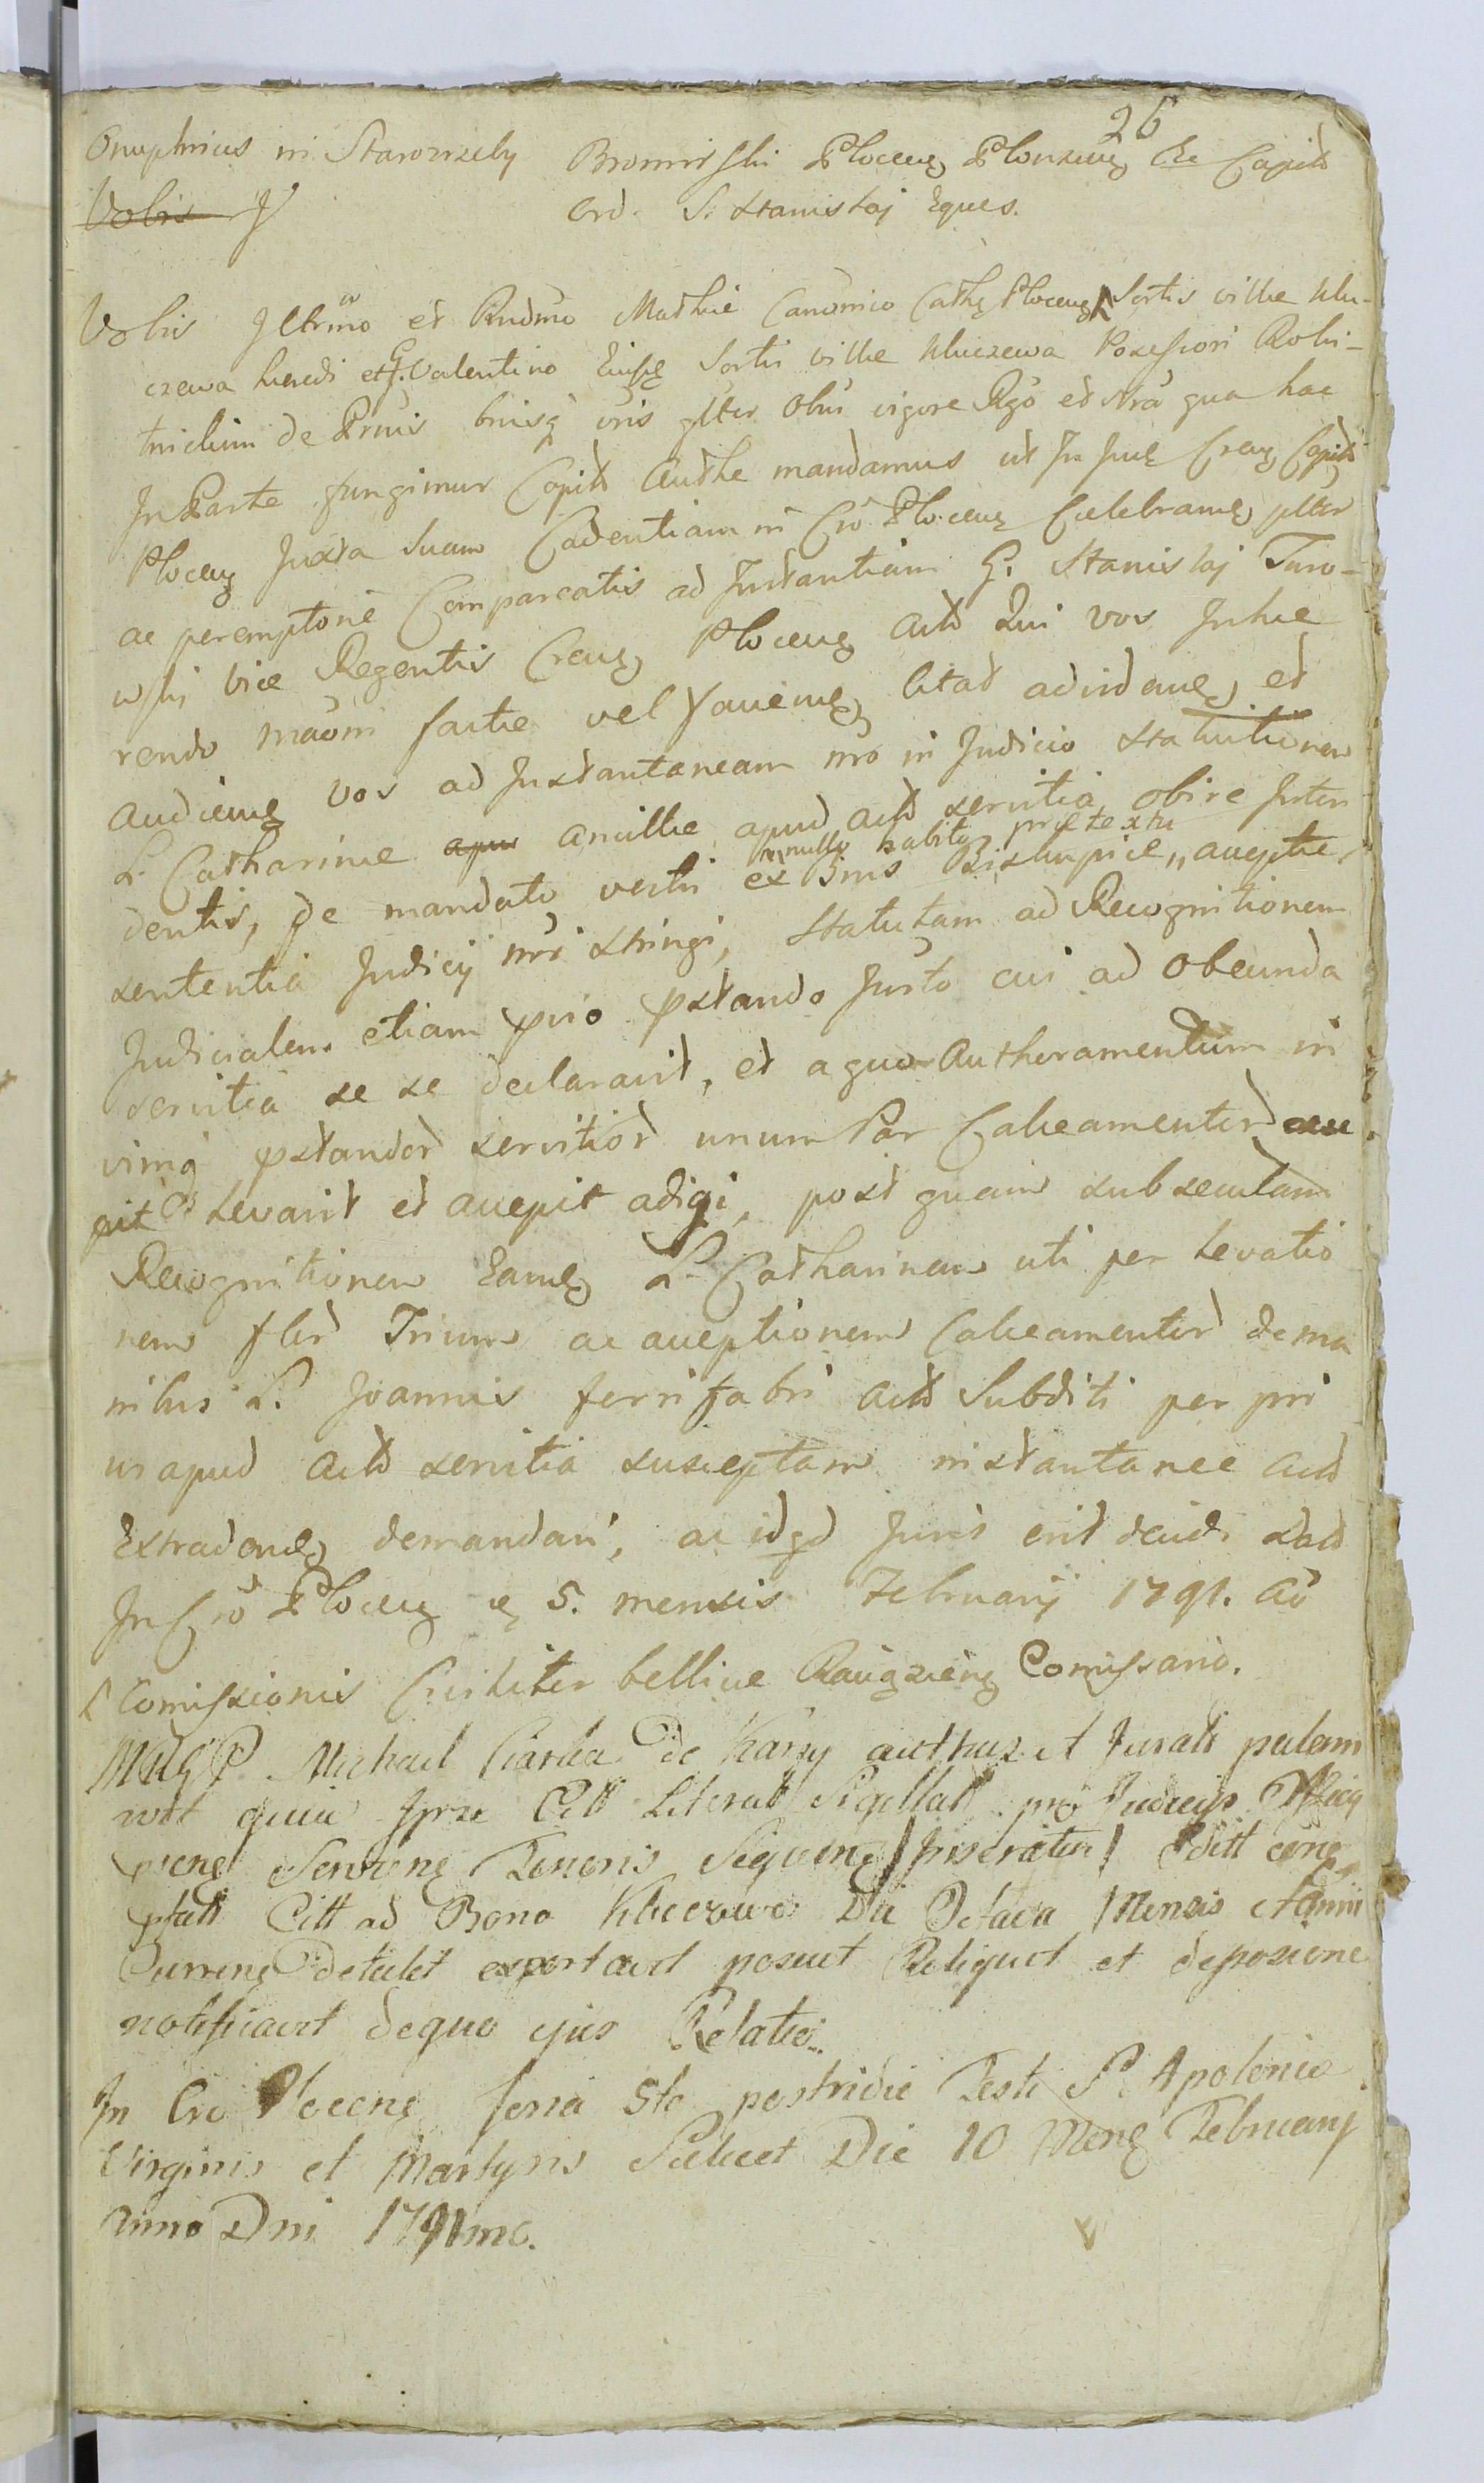 26
Onuphrius in Starozreby Bromirski Plocens Plonscens &c Capits
Vobis J Ord. S. Stanislaj Eques.
Vobis Illrmo et Rndmo Mathiæ Canonico Cathę Plocens Sortis villæ Klu-
czewa heredi et G. Valentino Eiusdę Sortis villæ Kluczewa Possessori Robi-
tnickim de Prnis bnisq vris gltr Obus vigore Rgo et Nra qua hac
In Parte fungimur Capits Authe mandamus ut In Jud Crens Capit
Plocens Juxta Suam Cadentiam in Cro Plocens Celebrans pltr
ac peremptorie Compareatis ad Instantiam G. Stanislaj Turo-
wski Vice Regentis Crens Plocens Acts Qui vos Inhæ
rendo maoni factæ vel faciens Citat ad idans et
audiens vos ad Instantaneam nro in Judicio Statutionem
L. Catharinæ apu ancillæ apud acts servitia obire Inten
dentis, de mandato vestri ex Bnis Biskupice „ acceptæ,
nullo habito prætextu
sententia Judicij nri stringi, Statutam ad Recognitionem
Judicialem etiam prio pstando Jurto cui ad Obeunda
servitia se se declaravit, et a quo Authoramentum in
vim pstandor servitior unum Par Calceamentor acce
pit Et Levavit et accepit adigi, post quam subsecutam
Recognitionem Eamd L. Catharinam uti per Levatio
nem flor Trium ac acceptionem Calceamentor de ma
nibus L. Joannis ferri fabri Acts Subditi per pri
us apud Acts servitia susceptam instantaneæ Acts
Extradend demandari, ac idqd Juris erit decidi Dat
In Cro Plocens ę 5. mensis Februarij 1791. Ao
Comissionis Civiliter bellicæ Raciązens Comissario.
Michael de Karsy authus et Jurats palam
rott quia Ipse Citt Literat Sigillatt pro Judicijs
Tenoris Sequens / Inseratur / Editt
ptatt Citt ad Bona Kluczewo Die Octava Mensis et Anni
Currens detulit exportavit posuit Reliquit et deposione
notificavit de quo ejus Relatio.
In Cro Plocens feria 5ta postridie Festi S. Apoloniæ
Virginis et Martyris Scilicet Die 10 Mens Februarij
Anno Dni 1791mo.